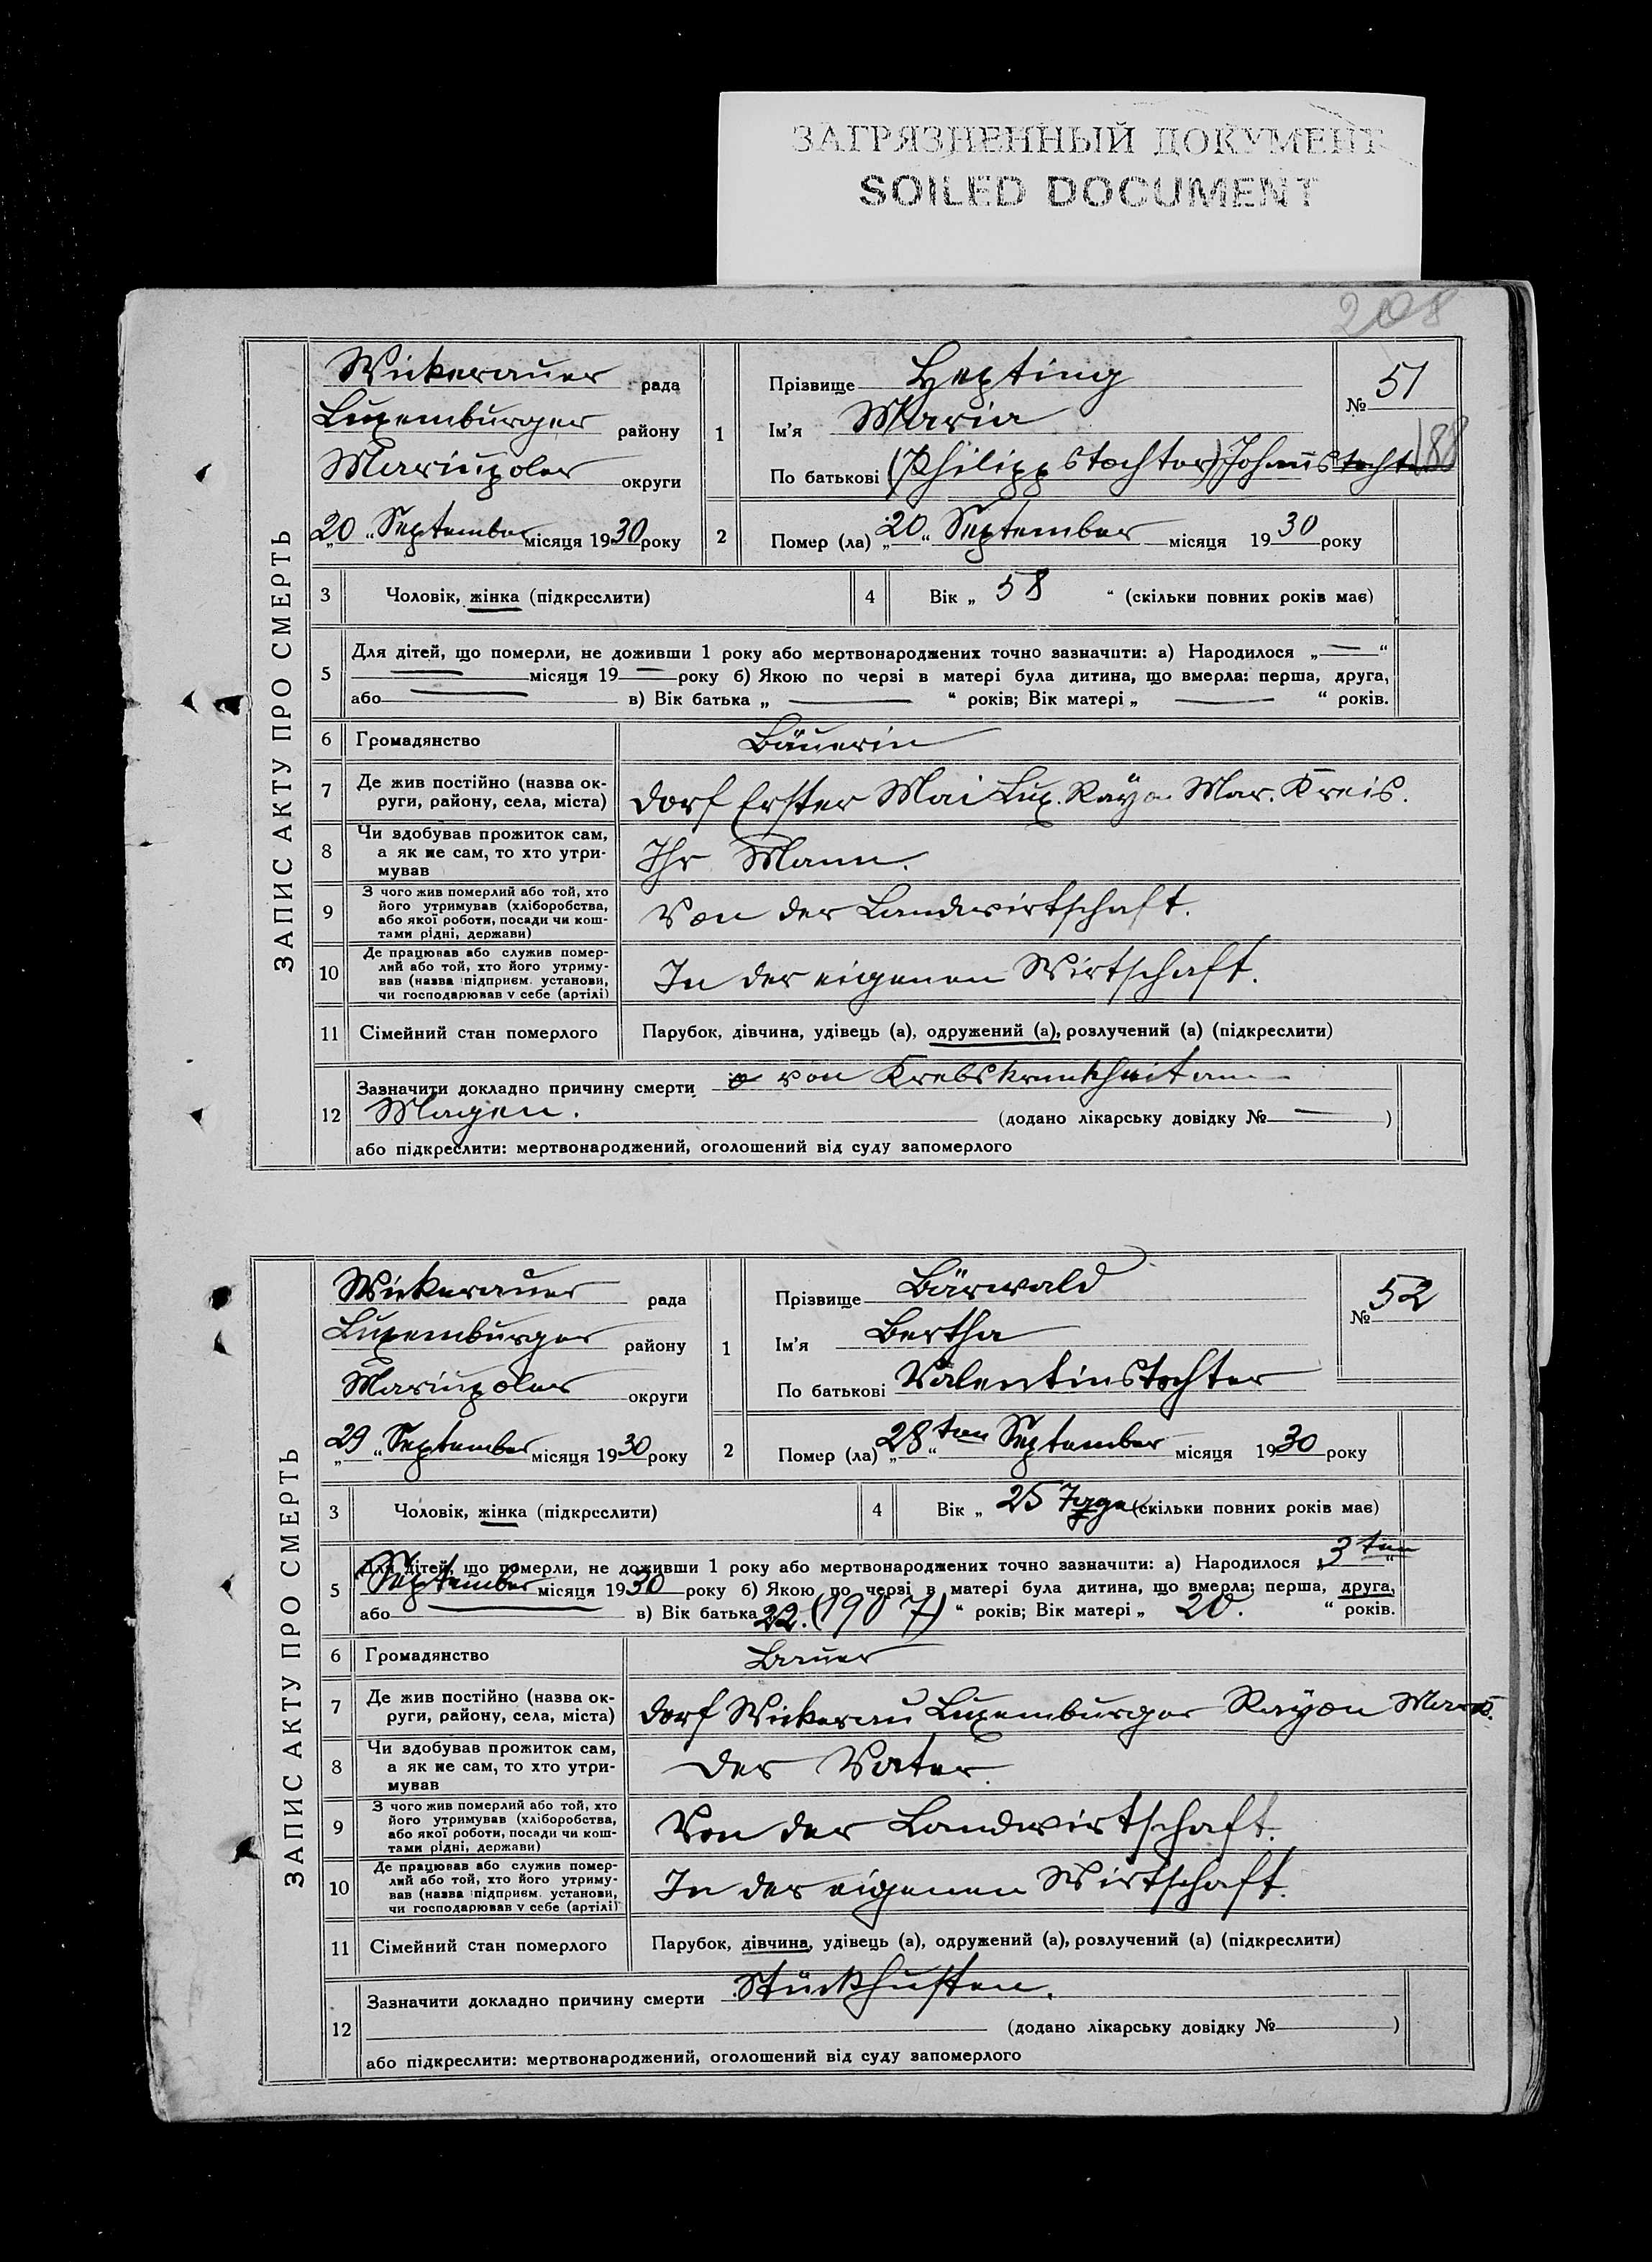 ЗАГРЯЗНЕННЫЙ ДОКУМЕНТ
SOILED DOCUMENT
208
ЗАПИС АКТУ ПРО СМЕРТЬ
Wickerauer рада
Luxemburger району
Mariupoler округи
„20“ September місяця 1930 року
1
Прізвище Hepting
Ім'я Maria
По батькові (Philippstochter) Johannstochter
№ 51
188
2 Помер (ла) „20“ September місяця 1930 року
3 Чоловік, жінка (підкреслити)
4 Вік „58“ (скільки повних років має)
5 Для дітей, що померли, не доживши 1 року або мертвонароджених точно зазначити: а) Народилося „—“
— місяця 19— року б) Якою по черзі в матері була дитина, що вмерла: перша, друга,
або — в) Вік батька „ — “ років; Вік матері „ — “ років.
6 Громадянство Bäuerin
7 Де жив постійно (назва ок-
руги, району, села, міста) Dorf Erster Mai Lux. Rayon Mar. Kreis.
8 Чи здобував прожиток сам,
а як не сам, то хто утри-
мував Ihr Mann.
9 З чого жив померлий або той, хто
його утримував (хліборобства,
або якої роботи, посади чи кош-
тами рідні, держави) Von der Landwirtschaft.
10 Де працював або служив помер-
лий або той, хто його утриму-
вав (назва підприєм. установи,
чи господарював у себе (артілі) In der eigenen Wirtschaft.
11 Сімейний стан померлого Парубок, дівчина, удівець (а), одружений (а), розлучений (а) (підкреслити)
12 Зазначити докладно причину смерти von Krebskrankheit am
Magen. (додано лікарську довідку № — )
або підкреслити: мертвонароджений, оголошений від суду запомерлого
ЗАПИС АКТУ ПРО СМЕРТЬ
Wickerauer рада
Luxemburger району
Mariupoler округи
„29“ September місяця 1930 року
1
Прізвище Bärwald
Ім'я Bertha
По батькові Valentinstochter
№ 52
2 Помер (ла) „28ten“ September місяця 1930 року
3 Чоловік, жінка (підкреслити)
4 Вік „25 Tage (скільки повних років має)
5 Для дітей, що померли, не доживши 1 року або мертвонароджених точно зазначити: а) Народилося „3ten“
September місяця 1930 року б) Якою по черзі в матері була дитина, що вмерла; перша, друга,
або — в) Вік батька „22. (1907)“ років; Вік матері „20.“ років.
6 Громадянство Bauer
7 Де жив постійно (назва ок-
руги, району, села, міста) Dorf Wickerau Luxemburger Rayon
8 Чи здобував прожиток сам,
а як не сам, то хто утри-
мував Der Vater.
9 З чого жив померлий або той, хто
його утримував (хліборобства,
або якої роботи, посади чи кош-
тами рідні, держави) Von der Landwirtschaft.
10 Де працював або служив помер-
лий або той, хто його утриму-
вав (назва підприєм. установи,
чи господарював у себе (артілі) In der eigenen Wirtschaft.
11 Сімейний стан померлого Парубок, дівчина, удівець (а), одружений (а), розлучений (а) (підкреслити)
12 Зазначити докладно причину смерти Stückhusten.
(додано лікарську довідку № )
або підкреслити: мертвонароджений, оголошений від суду запомерлого